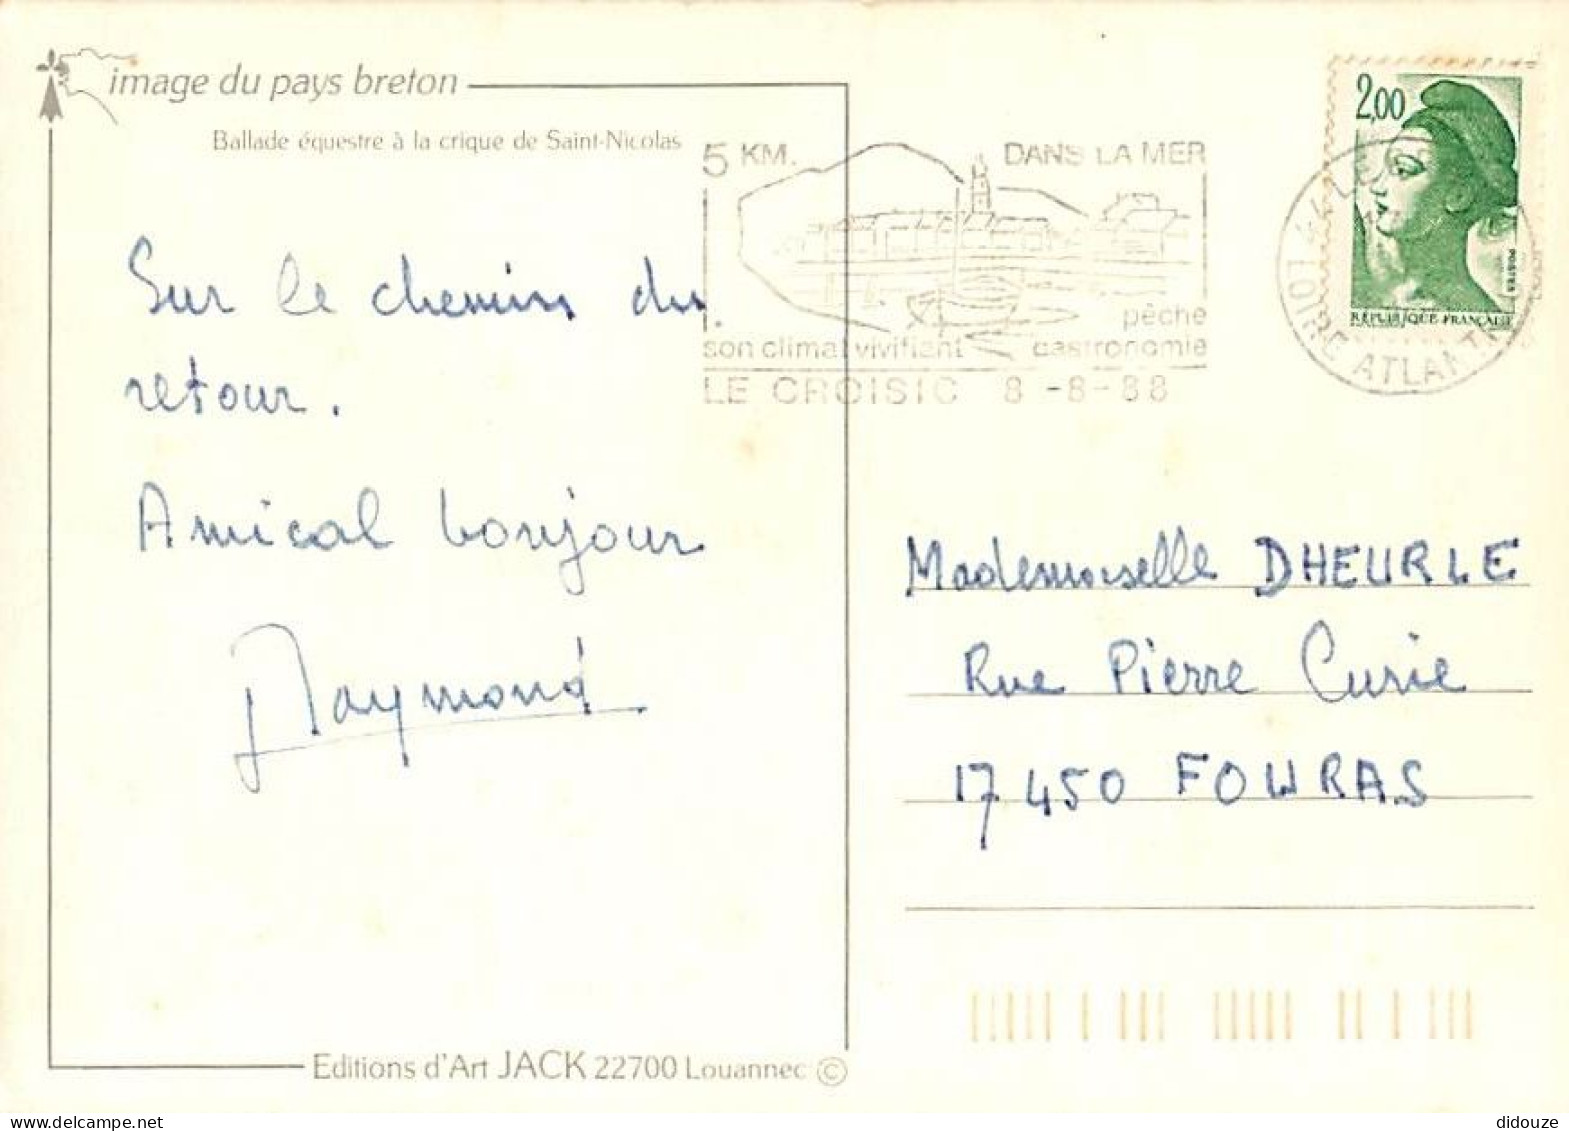 image du pays breton
Ballade équestre à la crique de Saint-Nicolas
5 KM. DANS LA MER
pêche
son climat vivifiant gastronomie
LE CROISIC 8 -8- 88
44 LE
LOIRE ATLANT
2,00
POSTES
RÉPUBLIQUE FRANÇAISE
Sur le chemin du
retour.
Amical bonjour
Raymond
Mademoiselle DHEURLE
Rue Pierre Curie
17 450 FOURAS
Editions d'Art JACK 22700 Louannec ©
didouze